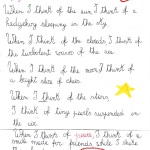 When I think of the sun, I think of a
hedgehog sleeping in the sky.
When I think of the clouds, I think of
the turbulent waves of the sea.
When I think of the moon, I think of
a bright slice of cheese.
When I think of the stars,
I think of tiny pearls suspended in
the air.
When I think of I think of a
smile made for friends while I share